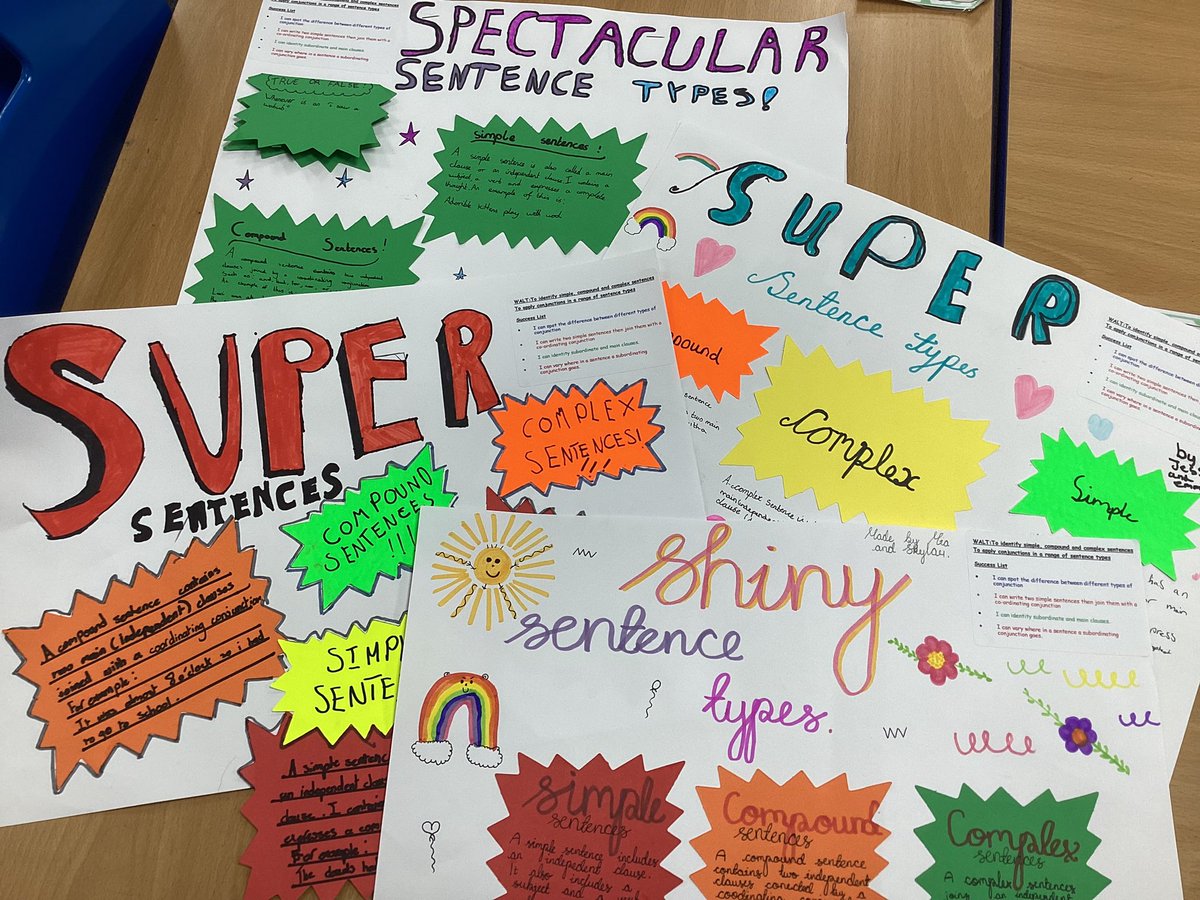 To apply conjunctions in a range of sentence types
Success List
I can spot the difference between different types of
conjunction
I can write two simple sentences then join them with a
co-ordinating conjunction
I can identify subordinate and main clauses.
I can vary where in a sentence a subordinating
conjunction goes.
SPECTACULAR
SENTENCE TYPES!
TRUE OR FALSE?
Simple sentences!
A simple sentence is also called a main
clause or an independent clause. I contains a
subject, a verb and expresses a complete
thought. An example of this is:
Adorible kittens play with wool
Compound Sentences!
A compound sentence contains two
clauses joined by a coordinating conjunction
SUPER
Sentence types
WALT:To identify simple, compound
To apply conjunctions in a range of
Success List
I can spot the difference
conjunction
I can write two simple
co-ordinating conjunction
I can identify subordinate and main
I can vary where in a sentence a
conjunction goes.
pound
sentence
two main
Complex
A complex sentence is
main/independent
clause
Simple
by
SUPER
SENTENCES
WALT:To identify simple, compound and complex sentences
To apply conjunctions in a range of sentence types
Success List
I can spot the difference between different types of
conjunction
I can write two simple sentences then join them with a
co-ordinating conjunction
I can identify subordinate and main clauses.
I can vary where in a sentence a subordinating
conjunction goes.
COMPLEX
SENTENCES!
COMPOUND
SENTENCES
!!!
A compound sentence contains
two main (independent) clauses
joined with a coordinating conjunction
For example:
It was almost 8 o'clock so i had
to go to school.
SIMP
SENTE
A simple sentenc
an independent claus
clause. I contain
expresses a com
For example:
The clouds
shiny
sentence
types.
Made by
and Skylar.
WALT:To identify simple, compound and complex sentences
To apply conjunctions in a range of sentence types
Success List
I can spot the difference between different types of
conjunction
I can write two simple sentences then join them with a
co-ordinating conjunction
I can identify subordinate and main clauses.
I can vary where in a sentence a subordinating
conjunction goes.
simple
sentences
A simple sentence includes
an independent clause.
It also includes a
subject and a
Compound
sentences
A compound sentence
contains two independent
clauses conected by a
Complex
sentences
A complex sentences
joins an independent